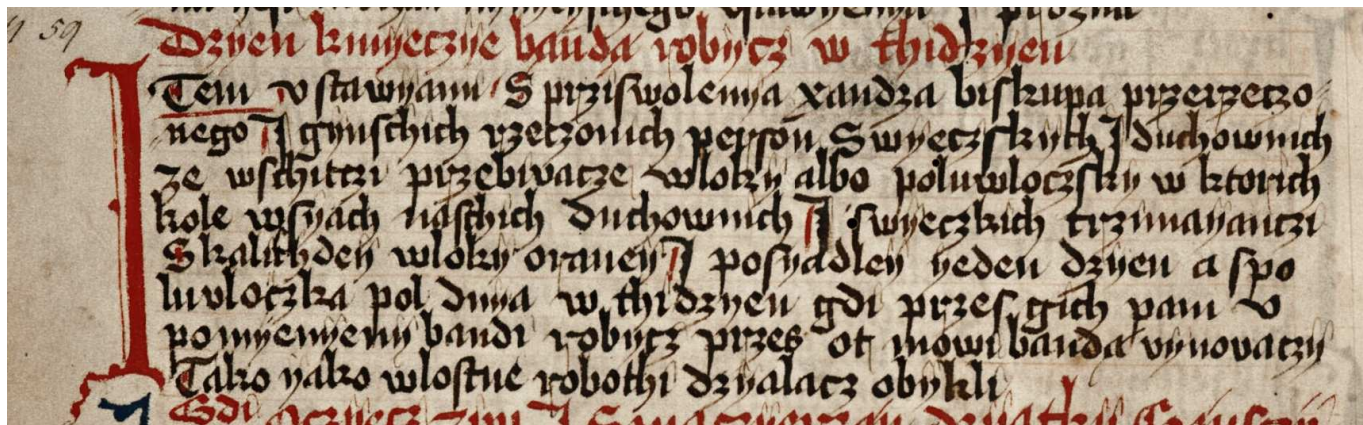 59
Dzyen kmyeczye banda robycz w thidzyen
Item vstawyami S prziswolenya xandza biskupa przerzeczo
nego I gynschich rzeczonich person Swyeczskych I duchownich
ze wschitczi przebivacze wloky albo poluwloczsky w ktorich
kole wsyach naschich duchownich I swyeczkich trzimayanczi
Skalithdey wloky oraney I posyadley yeden dzyen a spo
luvloczka pol dnya w thidzyen gdi przes gich pani v
pomyenyeny bandi robycz przes ot mowi banda vynovaczy
Tako yako wlostne robothi dzyalacz obykli
Gdi oczyecz